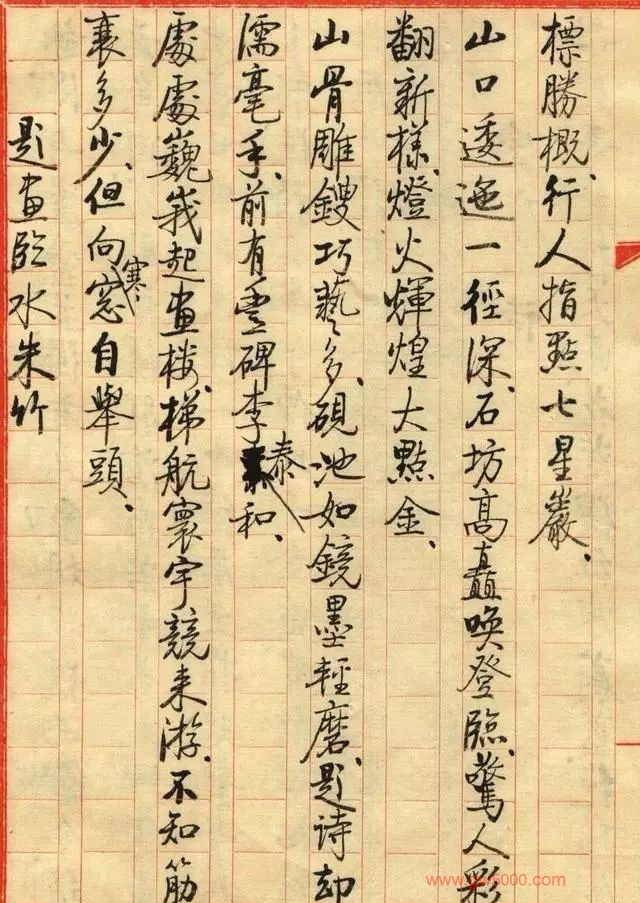 標勝概、行人指點七星巖、
山口逶迤一徑深、石坊高矗喚登臨、驚人彩
翻新樣、燈火輝煌大點金、
山骨雕鎪巧藝多、硯池如鏡墨輕磨、題诗却
濡毫手、前有豊碑李泰和、
處處巍峩起畫楼、梯航寰宇競来游、不知筋
襄多少、但向寒窓自舉頭、
題畫臨水朱竹
www.gw5000.com